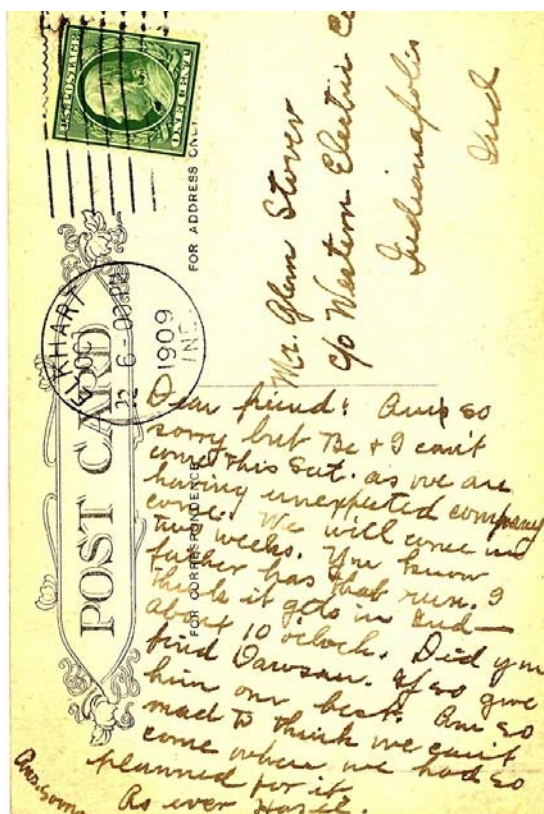 U.S. POSTAGE
ONE CENT
FOR ADDRESS ONLY
ELKHART
OCT
22 6-00PM
1909
IND.
POST CARD
FOR CORRESPONDENCE
Mr. Glen Stover
c/o Western Electric Co
Indianapolis
Ind
Dear friend: Am so
sorry but Be + I can't
come this Sat. as we are
having unexpected company
come. We will come in
two weeks. You know
father has that run. I
think it gets in Ind—
about 10 o'clock. Did you
find Dawson. If so give
him our best. Am so
mad to think we can't
come where we had so
planned for it.
As ever Hazel.
Ans. soon